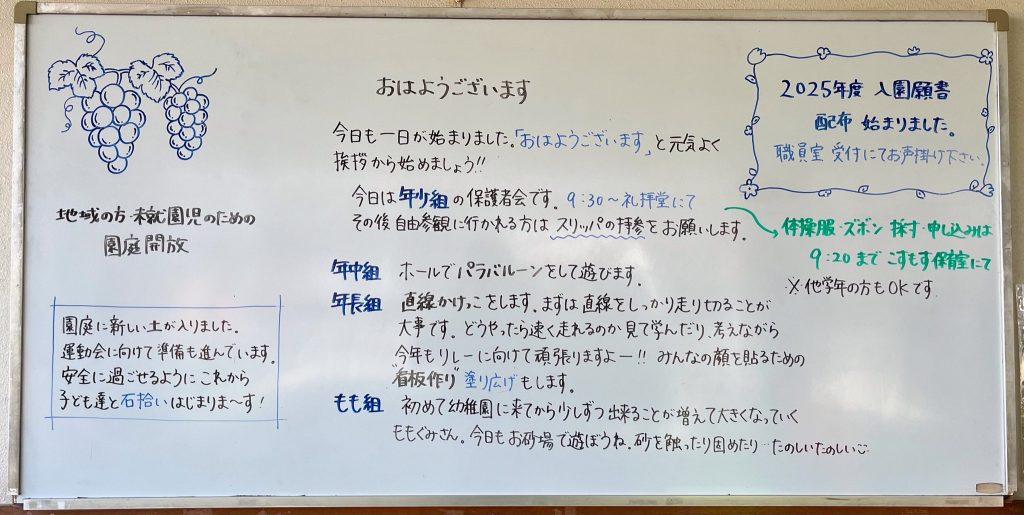 おはようございます
今日も一日が始まりました。「おはようございます」と元気よく
挨拶から始めましょう!!
今日は年少組の保護者会です。9:30~礼拝堂にて
その後自由参観に行かれる方はスリッパの持参をお願いします。
年中組 ホールでパラバルーンをして遊びます。
年長組 直線かけっこをします。まずは直線をしっかり走り切ることが
大事です。どうやったら速く走れるのか見て学んだり、考えながら
今年もリレーに向けて頑張りますよー!! みんなの顔を貼るための
"看板作り"塗り広げもします。
もも組 初めて幼稚園に来てから少しずつ出来ることが増えて大きくなっていく
ももぐみさん。今日もお砂場で遊ぼうね。砂を触ったり固めたり…たのしいたのしい
地域の方・未就園児のための
園庭開放
園庭に新しい土が入りました。
運動会に向けて準備も進んでいます。
安全に過ごせるようにこれから
子ども達と石拾いはじまりま~す!
2025年度 入園願書
配布 始まりました。
職員室 受付にてお声掛け下さい。
体操服・ズボン 採寸・申し込みは
9:20まで こすもす保育室にて
※他学年の方もOKです